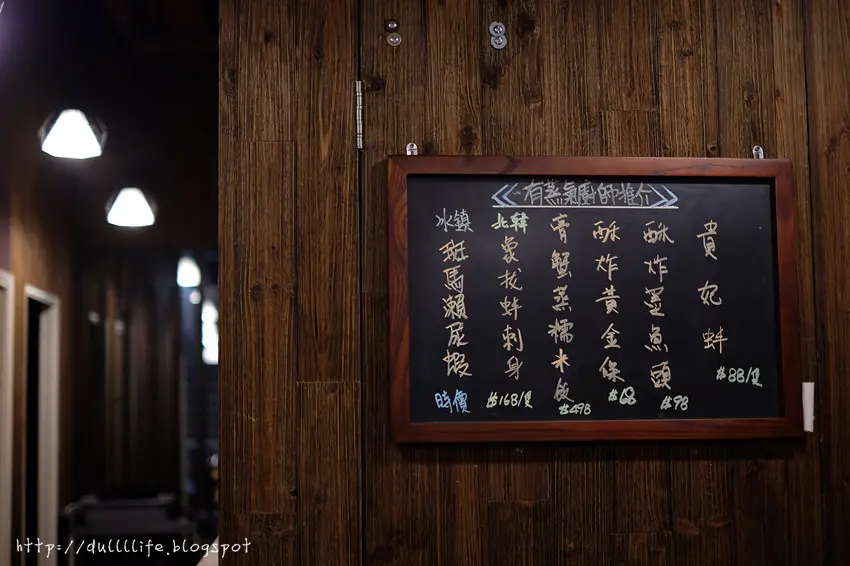 有蒸氣廚師推介
貴妃蚌
$88/隻
酥炸墨魚頭
$98
酥炸黃金條
$68
膏蟹蒸糯米飯
$498
北韓象拔蚌刺身
$168/隻
冰鎮斑馬瀨尿蝦
時價
http://dullllife.blogspot